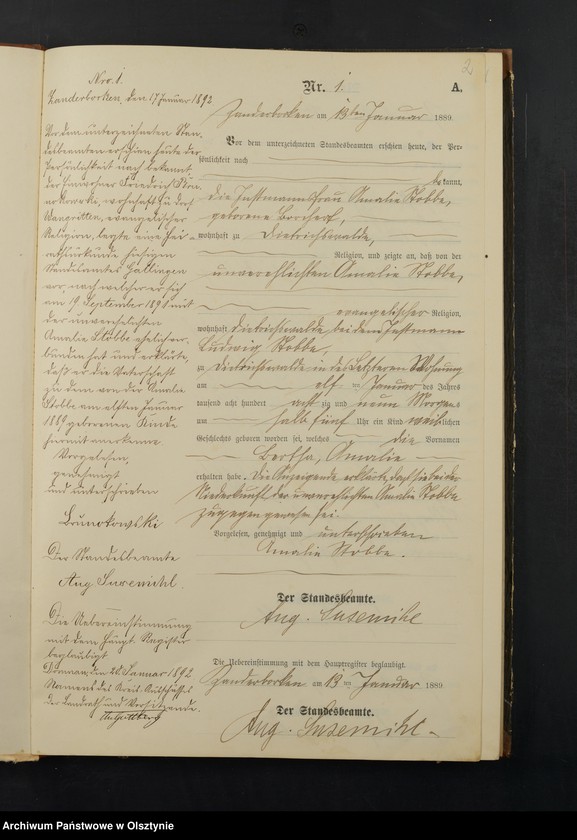 2
Nro. 1.
Zanderborken, den 17 Januar 1892
Vor dem unterzeichneten Stan-
desbeamten erschien heute der
Persönlichkeit nach bekannt,
der Einwohner Friedrich
wohnhaft zu
evangelischer
Religion, legte eine Hei-
rathsurkunde hiesigen
Standesamtes
vor, nach welcher er sich
am 19 September mit
der unverehelichten
Amalie Stobbe ehelich ver-
bunden hat und erklärte,
daß er die Vaterschaft
zu dem von der Amalie
Stobbe am elften Januar
1889 geborenen Kinde
hiermit anerkenne.
Vorgelesen,
genehmigt
und unterschrieben
Der Standesbeamte
Aug. Susemihl.
Die Uebereinstimmung
mit dem Haupt Register
beglaubigt
den 20. Januar 1892
Namens des Kreis Ausschusses
der Landrath und Vorsitzende.
Nr. 1. A.
Zanderborken am 13ten Januar 1889.
Vor dem unterzeichneten Standesbeamten erschien heute, der Per-
sönlichkeit nach
bekannt,
die Instmannsfrau Amalie Stobbe,
geborene Borchert,
wohnhaft zu Dietrichswalde,
Religion, und zeigte an, daß von der
unverehlichten Amalie Stobbe,
evangelischer Religion,
wohnhaft Dietrichswalde bei dem Instmann
Ludwig Stobbe,
zu Dietrichswalde in des Letzteren Wohnung
am elf ten Januar des Jahres
tausend acht hundert acht zig und neun Morgens
um halb fünf Uhr ein Kind weiblichen
Geschlechts geboren worden sei, welches die Vornamen
Bertha, Amalie
erhalten habe. Die Anzeigende erklärte, daß sie bei der
Niederkunft der unverehlichten Amalie Stobbe
zugegen gewesen sei.
Vorgelesen, genehmigt und unterschrieben
Amalie Stobbe.
Der Standesbeamte.
Aug. Susemihl
Die Uebereinstimmung mit dem Hauptregister beglaubigt.
Zanderborken am 13ten Januar 1889
Der Standesbeamte.
Aug. Susemihl
Archiwum Państwowe w Olsztynie